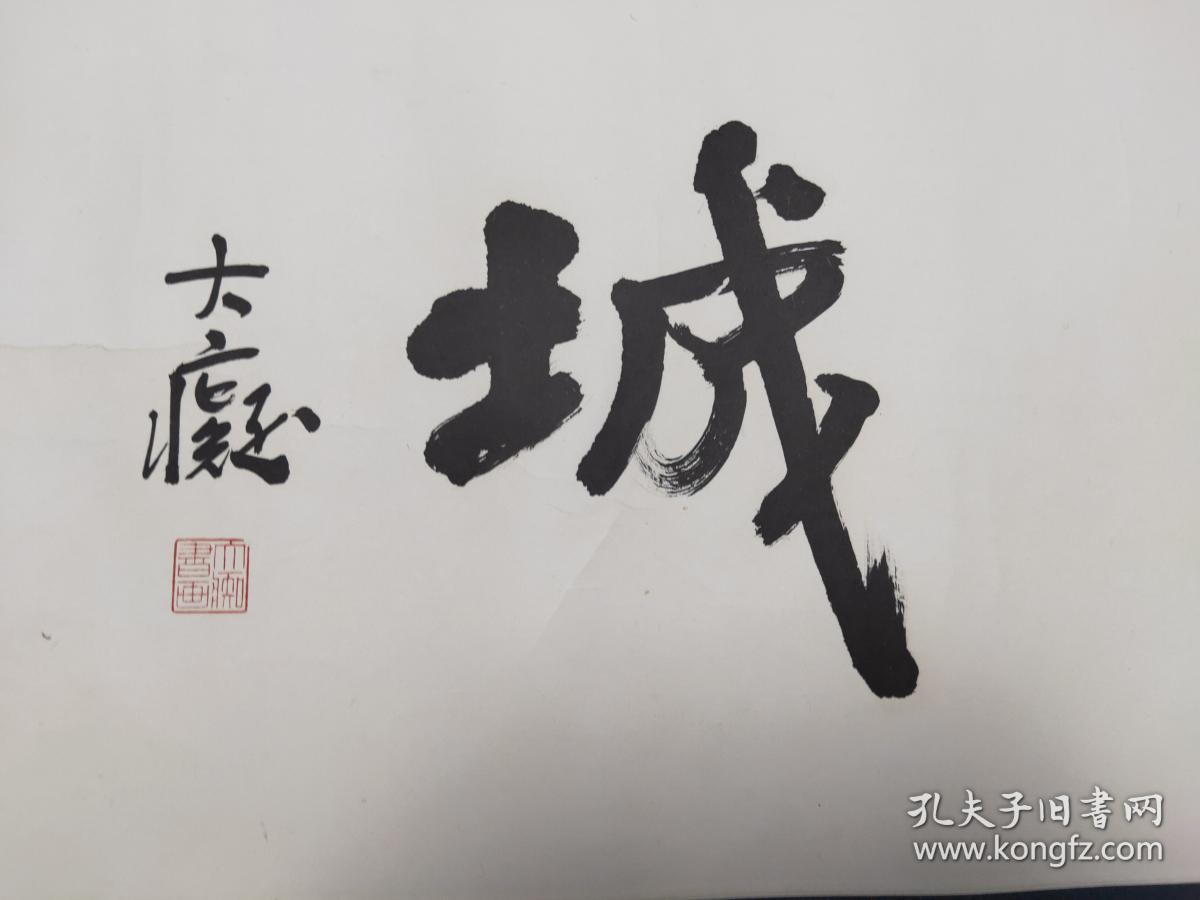 城
大癡
大癡書画
孔夫子旧书网
www.kongfz.com